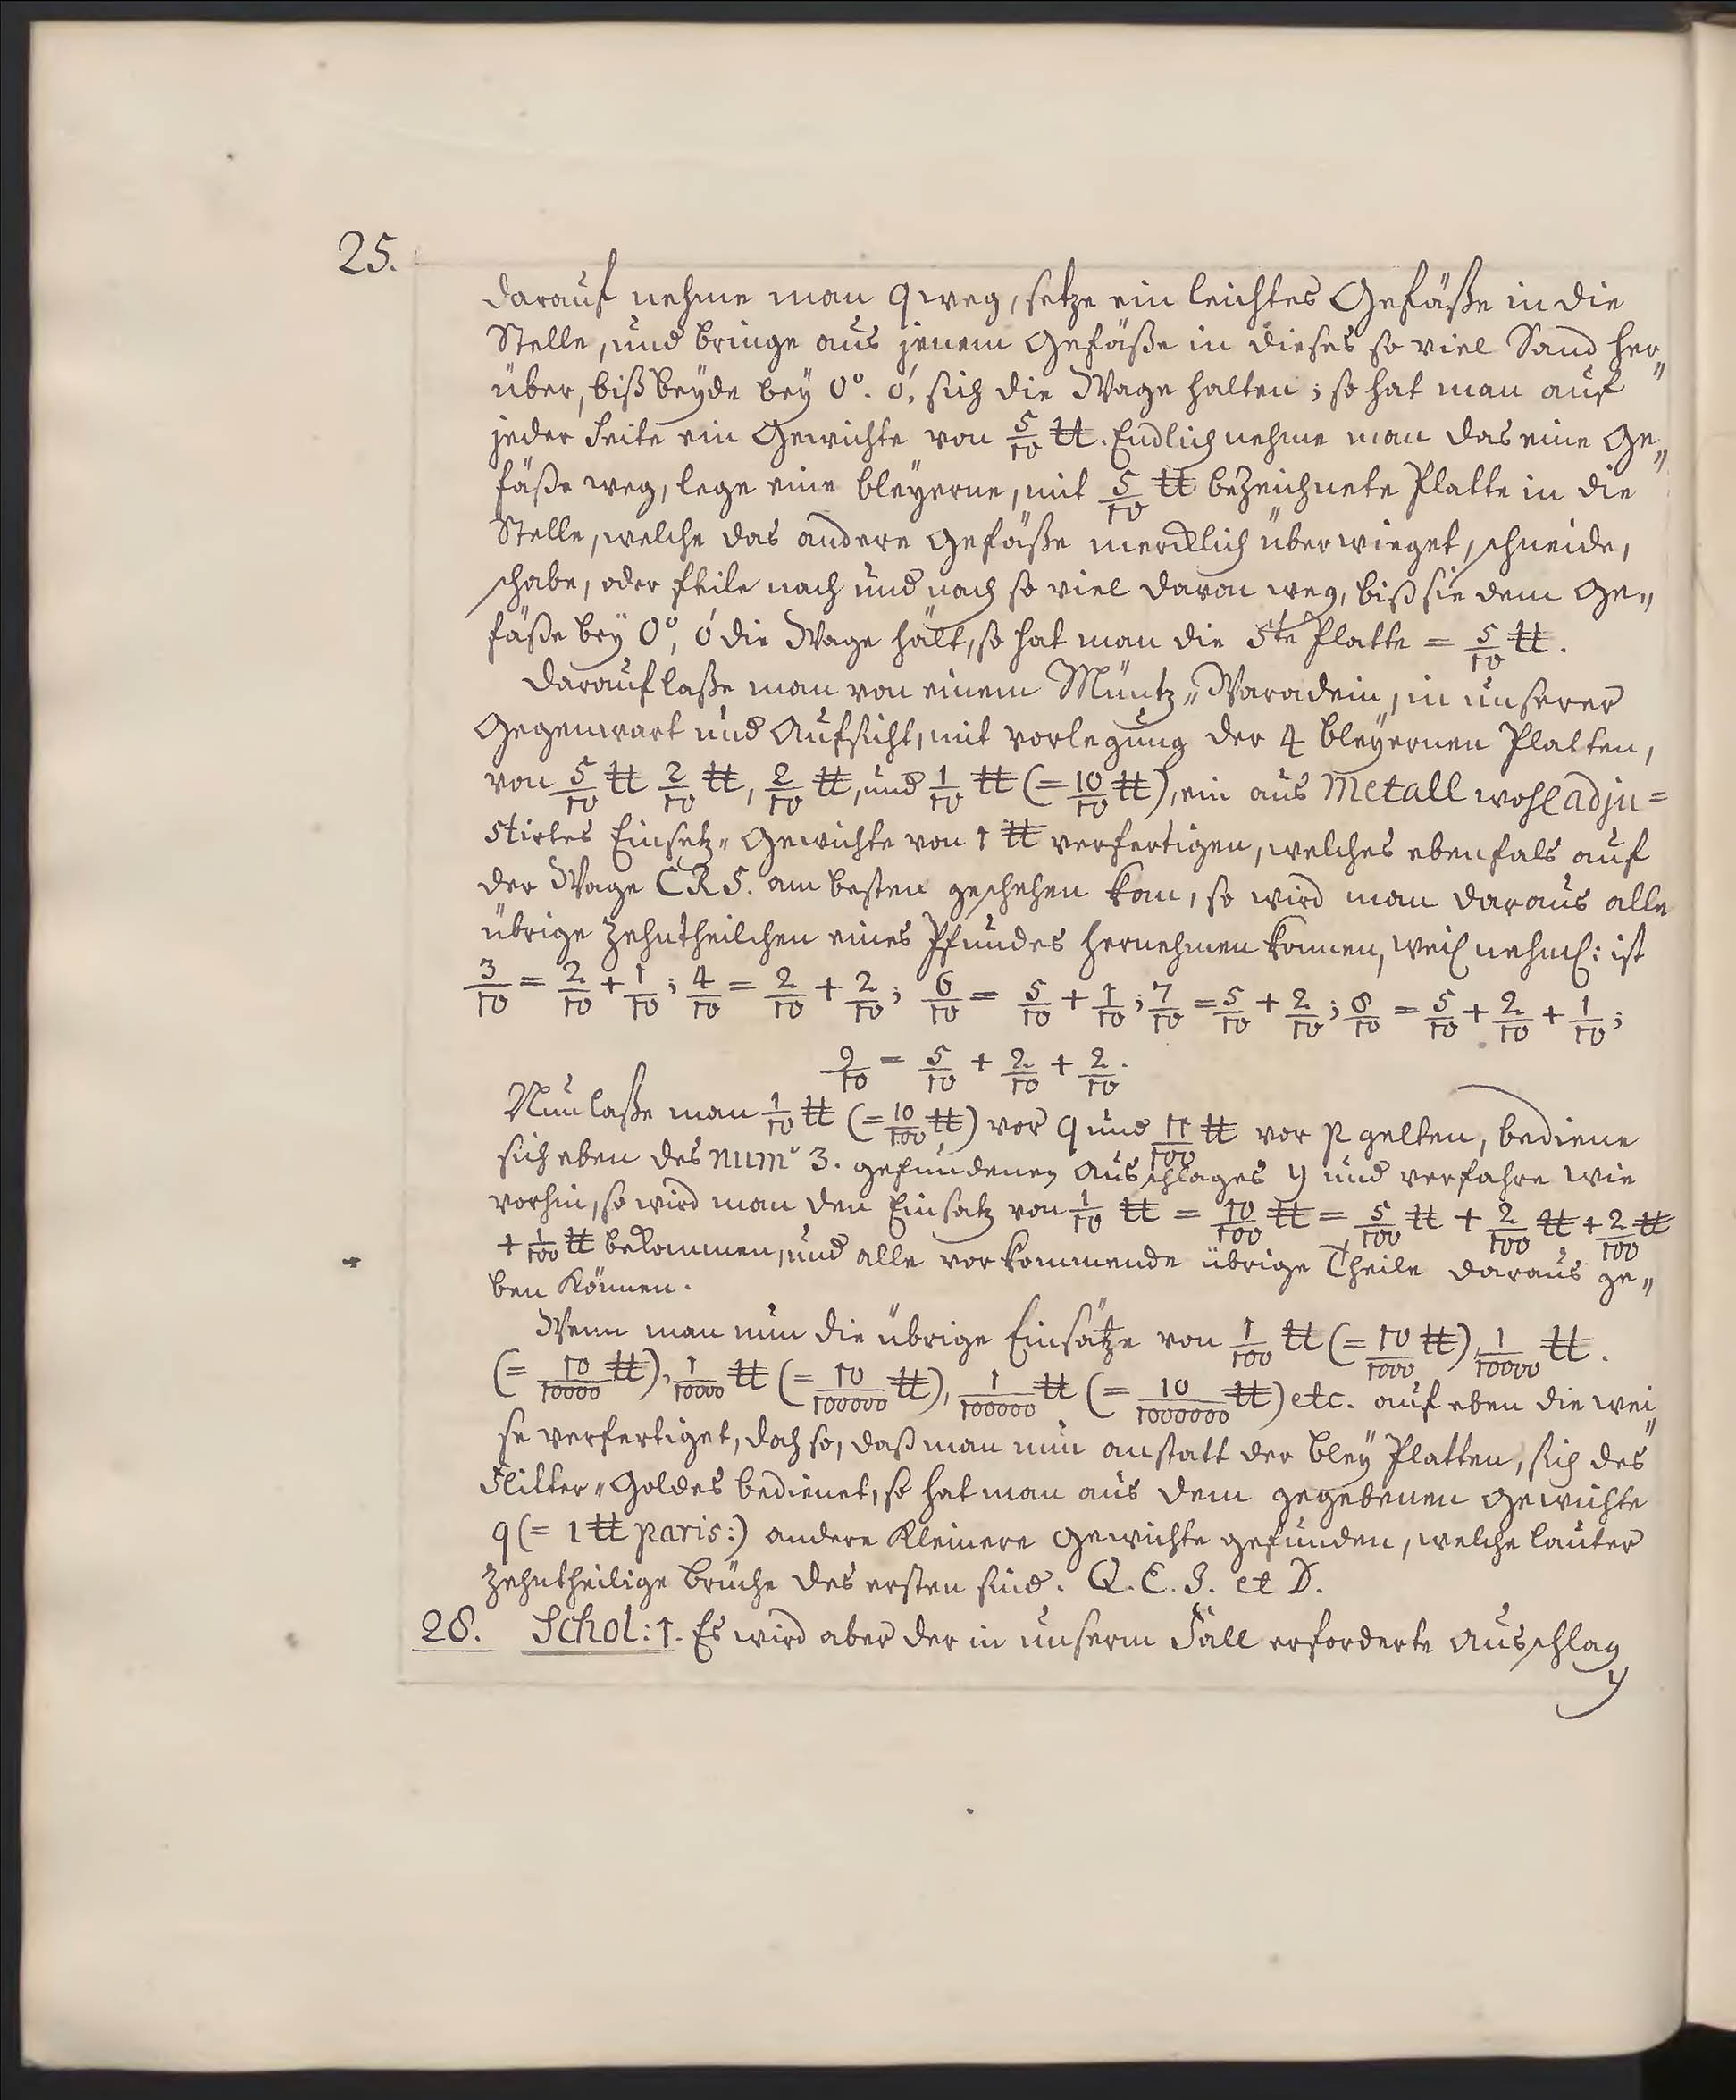 25.
darauf nehme man q weg, setze ein leichtes Gefäße in die
Stelle, und bringe aus jenem Gefäße in dieses so viel Sand her„
über, biß beyde bey 0°. 0', sich die Wage halten; so hat man auf
jeder Seite ein Gewichte von 5/10 ℔. Endlich nehme man das eine Ge„
fäße weg, lege eine bleyerne, mit 5/10 ℔ bezeichnete Platte in die
Stelle, welche das andere Gefäße mercklich überwieget, schneide,
schabe, oder feile nach und nach so viel davon weg, biß sie dem Ge„
fäße bey 0°, 0' die Wage hält, so hat man die 5te Platte = 5/10 ℔.
Darauf laße man von einem Müntz„Waradein, in unserer
Gegenwart und Aufsicht, mit vorlegung der 4 bleyernen Platten,
von 5/10 ℔ 2/10 ℔, 2/10 ℔, und 1/10 ℔ (= 10/10 ℔), ein aus Metall wohl adju=
stirtes Einsetz„Gewichte von 1 ℔ verfertigen, welches ebenfals auf
der Wage CRS. am besten geschehen kan, so wird man daraus alle
übrige Zehntheilchen eines Pfundes hernehmen konnen, weil nehml: ist
3/10 = 2/10 + 1/10; 4/10 = 2/10 + 2/10; 6/10 = 5/10 + 1/10; 7/10 = 5/10 + 2/10; 8/10 = 5/10 + 2/10 + 1/10;
9/10 = 5/10 + 2/10 + 2/10.
Nun laße man 1/10 ℔ (= 10/100 ℔) vor q und 11/100 ℔ vor p gelten, bediene
sich eben des num° 3. gefundenen Ausschlages y und verfahre wie
vorhin, so wird man den Einsatz von 1/10 ℔ = 10/100 ℔ = 5/100 ℔ + 2/100 ℔ + 2/100 ℔
+ 1/100 ℔ bekommen, und alle vorkommende übrige Theile daraus ge„
ben können.
Wenn man nun die übrige Einsätze von 1/100 ℔ (= 10/1000 ℔), 1/10000 ℔.
(= 10/10000 ℔), 1/10000 ℔ (= 10/100000 ℔), 1/100000 ℔ (= 10/1000000 ℔) etc. auf eben die wei„
se verfertiget, doch so, daß man nun anstatt der bley Platten, sich des
Flitter„Goldes bedienet, so hat man aus dem gegebenen Gewichte
q (= 1 ℔ paris:) andere kleinere Gewichte gefunden, welche lauter
Zehntheilige Brüche des ersten sind. Q. E. I. et D.
28. Schol: 1. Es wird aber der in unserm Fall erforderte Ausschlag
y